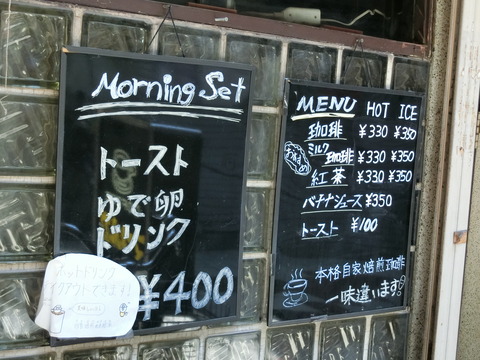 Morning Set
トースト
ゆで卵
ドリンク
¥400
ホットドリンク
テイクアウトできます!
MENU HOT ICE
珈琲 ¥330 ¥350
ミルク珈琲 ¥330 ¥350
紅茶 ¥330 ¥350
バナナジュース ¥350
トースト ¥100
本格自家焙煎珈琲
一味違います!